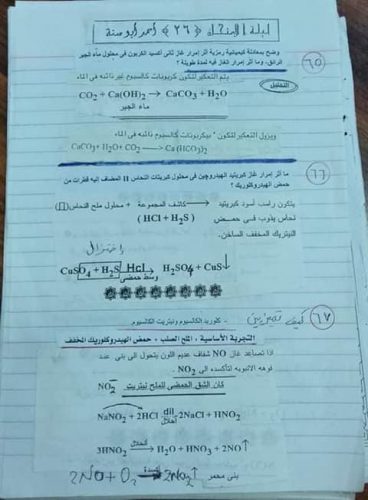 ليلة الامتحان (٢٦) أحمد أبو سنة
٦٥
وضح بمعادلة كيميائية رمزية اثر إمرار غاز ثانى أكسيد الكربون فى محلول ماء الجير
الرائق، وما أثر إمرار الغاز فيه لمدة طويلة ؟
يتم التعكير لتكون كربونات كالسيوم غير ذائبه فى الماء
التحليل
CO2 + Ca(OH)2 → CaCO3 + H2O
ماء الجير
ويزول التعكير لتكون بيكربونات كالسيوم ذائبه فى الماء
CaCO3 + H2O + CO2 → Ca (HCO3)2
٦٦
ما أثر إمرار غاز كبريتيد الهيدروجين فى محلول كبريتات النحاس II المضاف إليه قطرات من
حمض الهيدروكلوريك ؟
يتكون راسب أسود كبريتيد ← كاشف المجموعة + محلول ملح النحاس (II)
نحاس يذوب فى حمض ( HCl + H2S )
النيتريك المخفف الساخن.
CuSO4 + H2S HCl → H2SO4 + CuS↓
وسط حمضى
٦٧ كيف تميز بين
- كلوريد الكالسيوم ونيتريت الكالسيوم.
التجربة الأساسية : الملح الصلب + حمض الهيدروكلوريك المخفف
اذا تصاعد غاز NO شفاف عديم اللون يتحول الى بنى عند
فوهه الانبوبه لتأكسده الى NO2 .
كان الشق الحمضى للملح نيتريت NO2-
NaNO2 + 2HCl dil 2NaCl + HNO2
3HNO2 انحلال → H2O + HNO3 + 2NO↑
2NO + O2 → 2NO2↑ بنى محمر